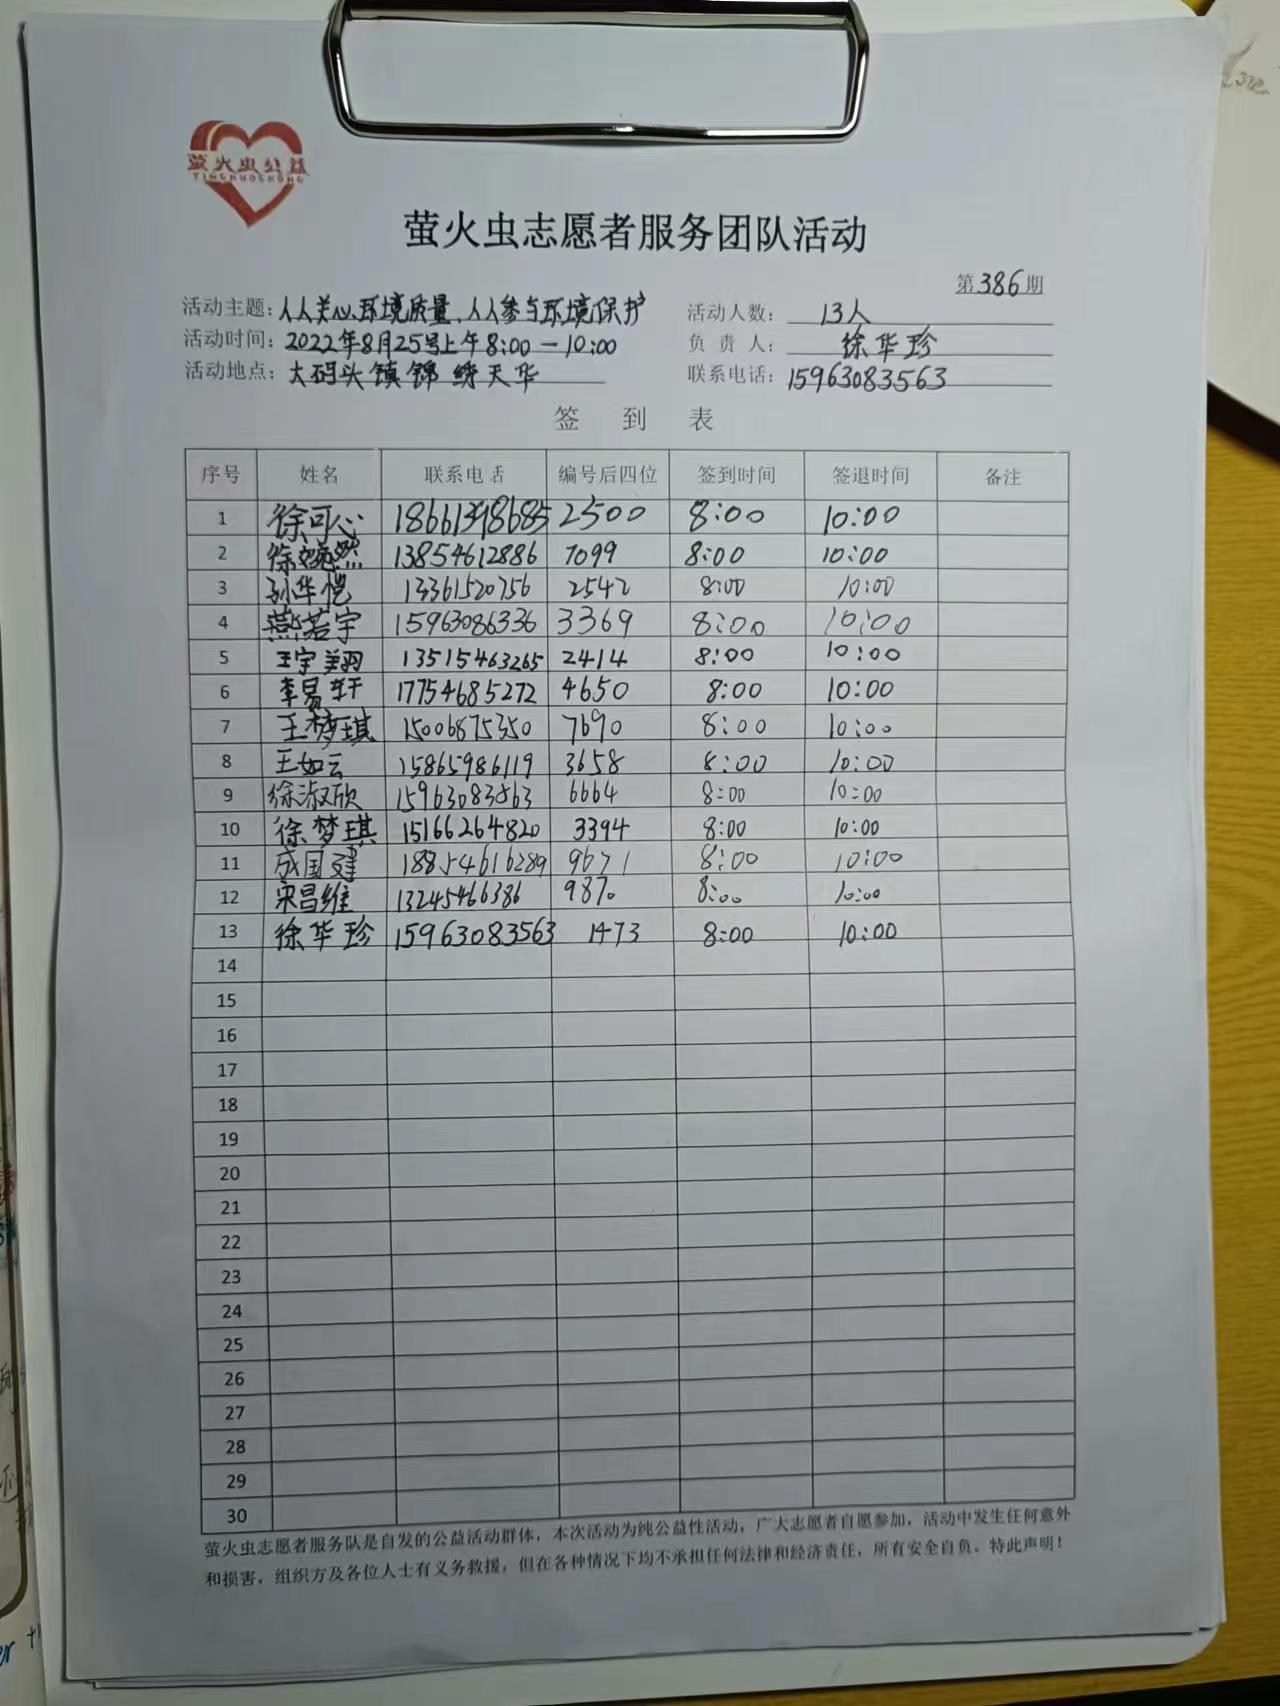 萤火虫公益
YINGHUOCHONG
萤火虫志愿者服务团队活动
第386期
活动主题：人人关心环境质量、人人参与环境保护 活动人数：13人
活动时间：2022年8月25号上午8:00—10:00 负责人：徐华珍
活动地点：大码头镇锦绣天华 联系电话：15963083563
签到表
序号 姓名 联系电话 编号后四位 签到时间 签退时间 备注
1 徐可心 18661398685 2500 8:00 10:00
2 徐婉然 13854612886 7099 8:00 10:00
3 孙华恺 13361520756 2542 8:00 10:00
4 燕若宇 15963086336 3369 8:00 10:00
5 王宇翔 13515463265 2414 8:00 10:00
6 李易轩 17754685272 4650 8:00 10:00
7 王梦琪 15006875350 7690 8:00 10:00
8 王如云 15865986119 3658 8:00 10:00
9 徐淑欣 15963083563 6664 8:00 10:00
10 徐梦琪 15166264820 3394 8:00 10:00
11 成国建 18854616289 9671 8:00 10:00
12 宋昌维 13245466386 9870 8:00 10:00
13 徐华珍 15963083563 1473 8:00 10:00
14
15
16
17
18
19
20
21
22
23
24
25
26
27
28
29
30
萤火虫志愿者服务队是自发的公益活动群体，本次活动为纯公益性活动，广大志愿者自愿参加，活动中发生任何意外
和损害，组织方及各位人士有义务救援，但在各种情况下均不承担任何法律和经济责任，所有安全自负。特此声明！